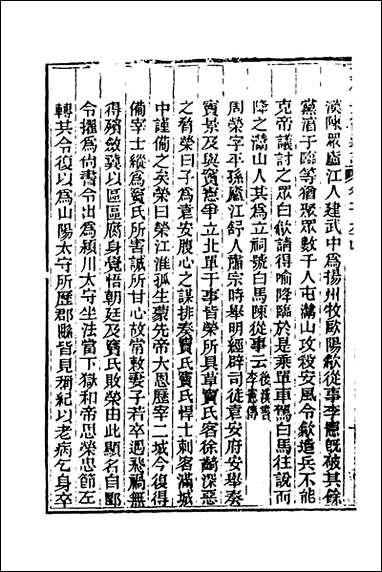 漢陳眾廬江人建武中為揚州牧歐陽歙從事李憲旣破其餘
黨淳于臨等猶聚眾數千人屯灊山攻殺安風令歙遣兵不能
克帝議討之眾白歙請得喻降臨於是乘單車駕白馬往說而
降之灊山人共為立祠號白馬陳從事云後漢書李憲傳
周榮字平孫廬江舒人肅宗時舉明經辟司徒袁安府安舉奏
竇景及與竇憲爭立北單于事皆榮所具草竇氏客徐齮深惡
之脅榮曰子為袁安腹心之謀排奏竇氏竇氏悍士刺客滿城
中謹備之矣榮曰榮江淮孤生蒙先帝大恩歷宰二城今復得
備宰士縱為竇氏所害誠所甘心故常敕妻子若卒遇飛禍無
得殯斂冀以區區腐身覺悟朝廷及竇氏敗榮由此顯名自郾
令擢為尚書令出為潁川太守坐法當下獄和帝思榮忠節左
轉共令復以為山陽太守所歷郡縣皆見稱紀以老病乞身卒